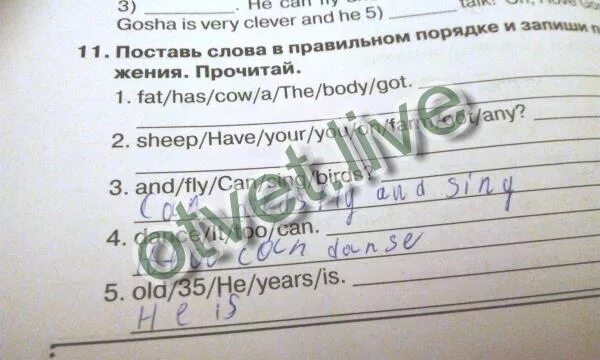 3) ________. He can fly
Gosha is very clever and he 5) ________ talk!
11. Поставь слова в правильном порядке и запиши
жения. Прочитай.
1. fat/has/cow/a/The/body/got.
2. sheep/Have/your/you/on/farm/got/any?
3. and/fly/Can/sing/birds?
Can fly and sing
4. dance/it/too/can.
can danse
5. old/35/He/years/is.
He is
otvet.live